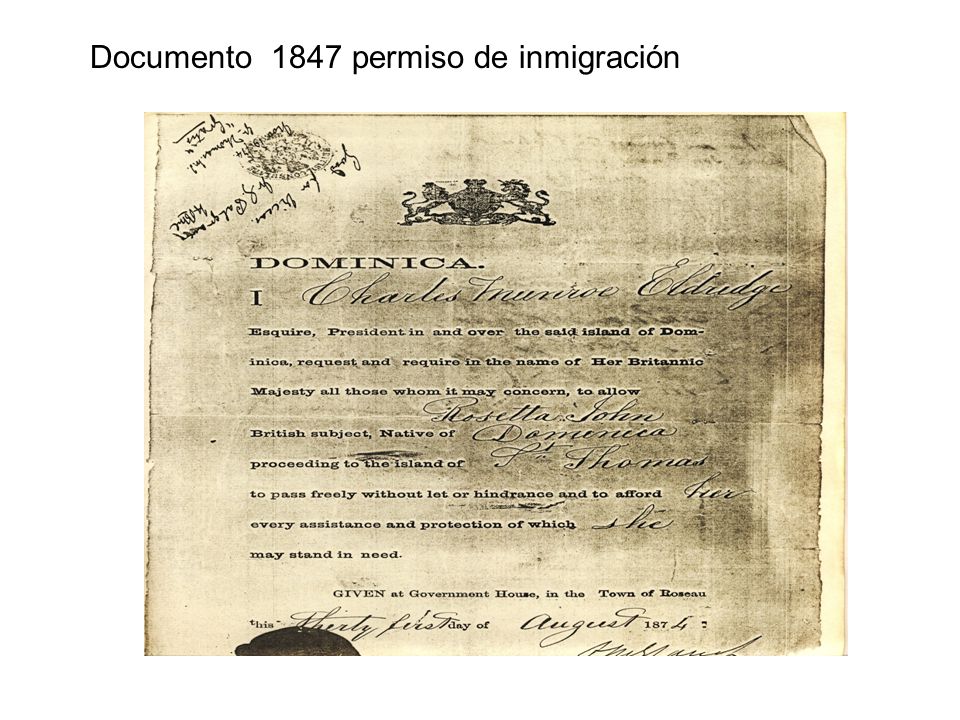 Documento 1847 permiso de inmigración
Good
for Vieques
"Gratis"
DOMINICA.
I Charles Munroe Eldridge
Esquire, President in and over the said island of Dom-
inica, request and require in the name of Her Britannic
Majesty all those whom it may concern, to allow
Rosetta John
British subject, Native of Domenica
proceeding to the island of St Thomas
to pass freely without let or hindrance and to afford her
every assistance and protection of which she
may stand in need.
GIVEN at Government House, in the Town of Roseau
this Thirty first day of August 1874